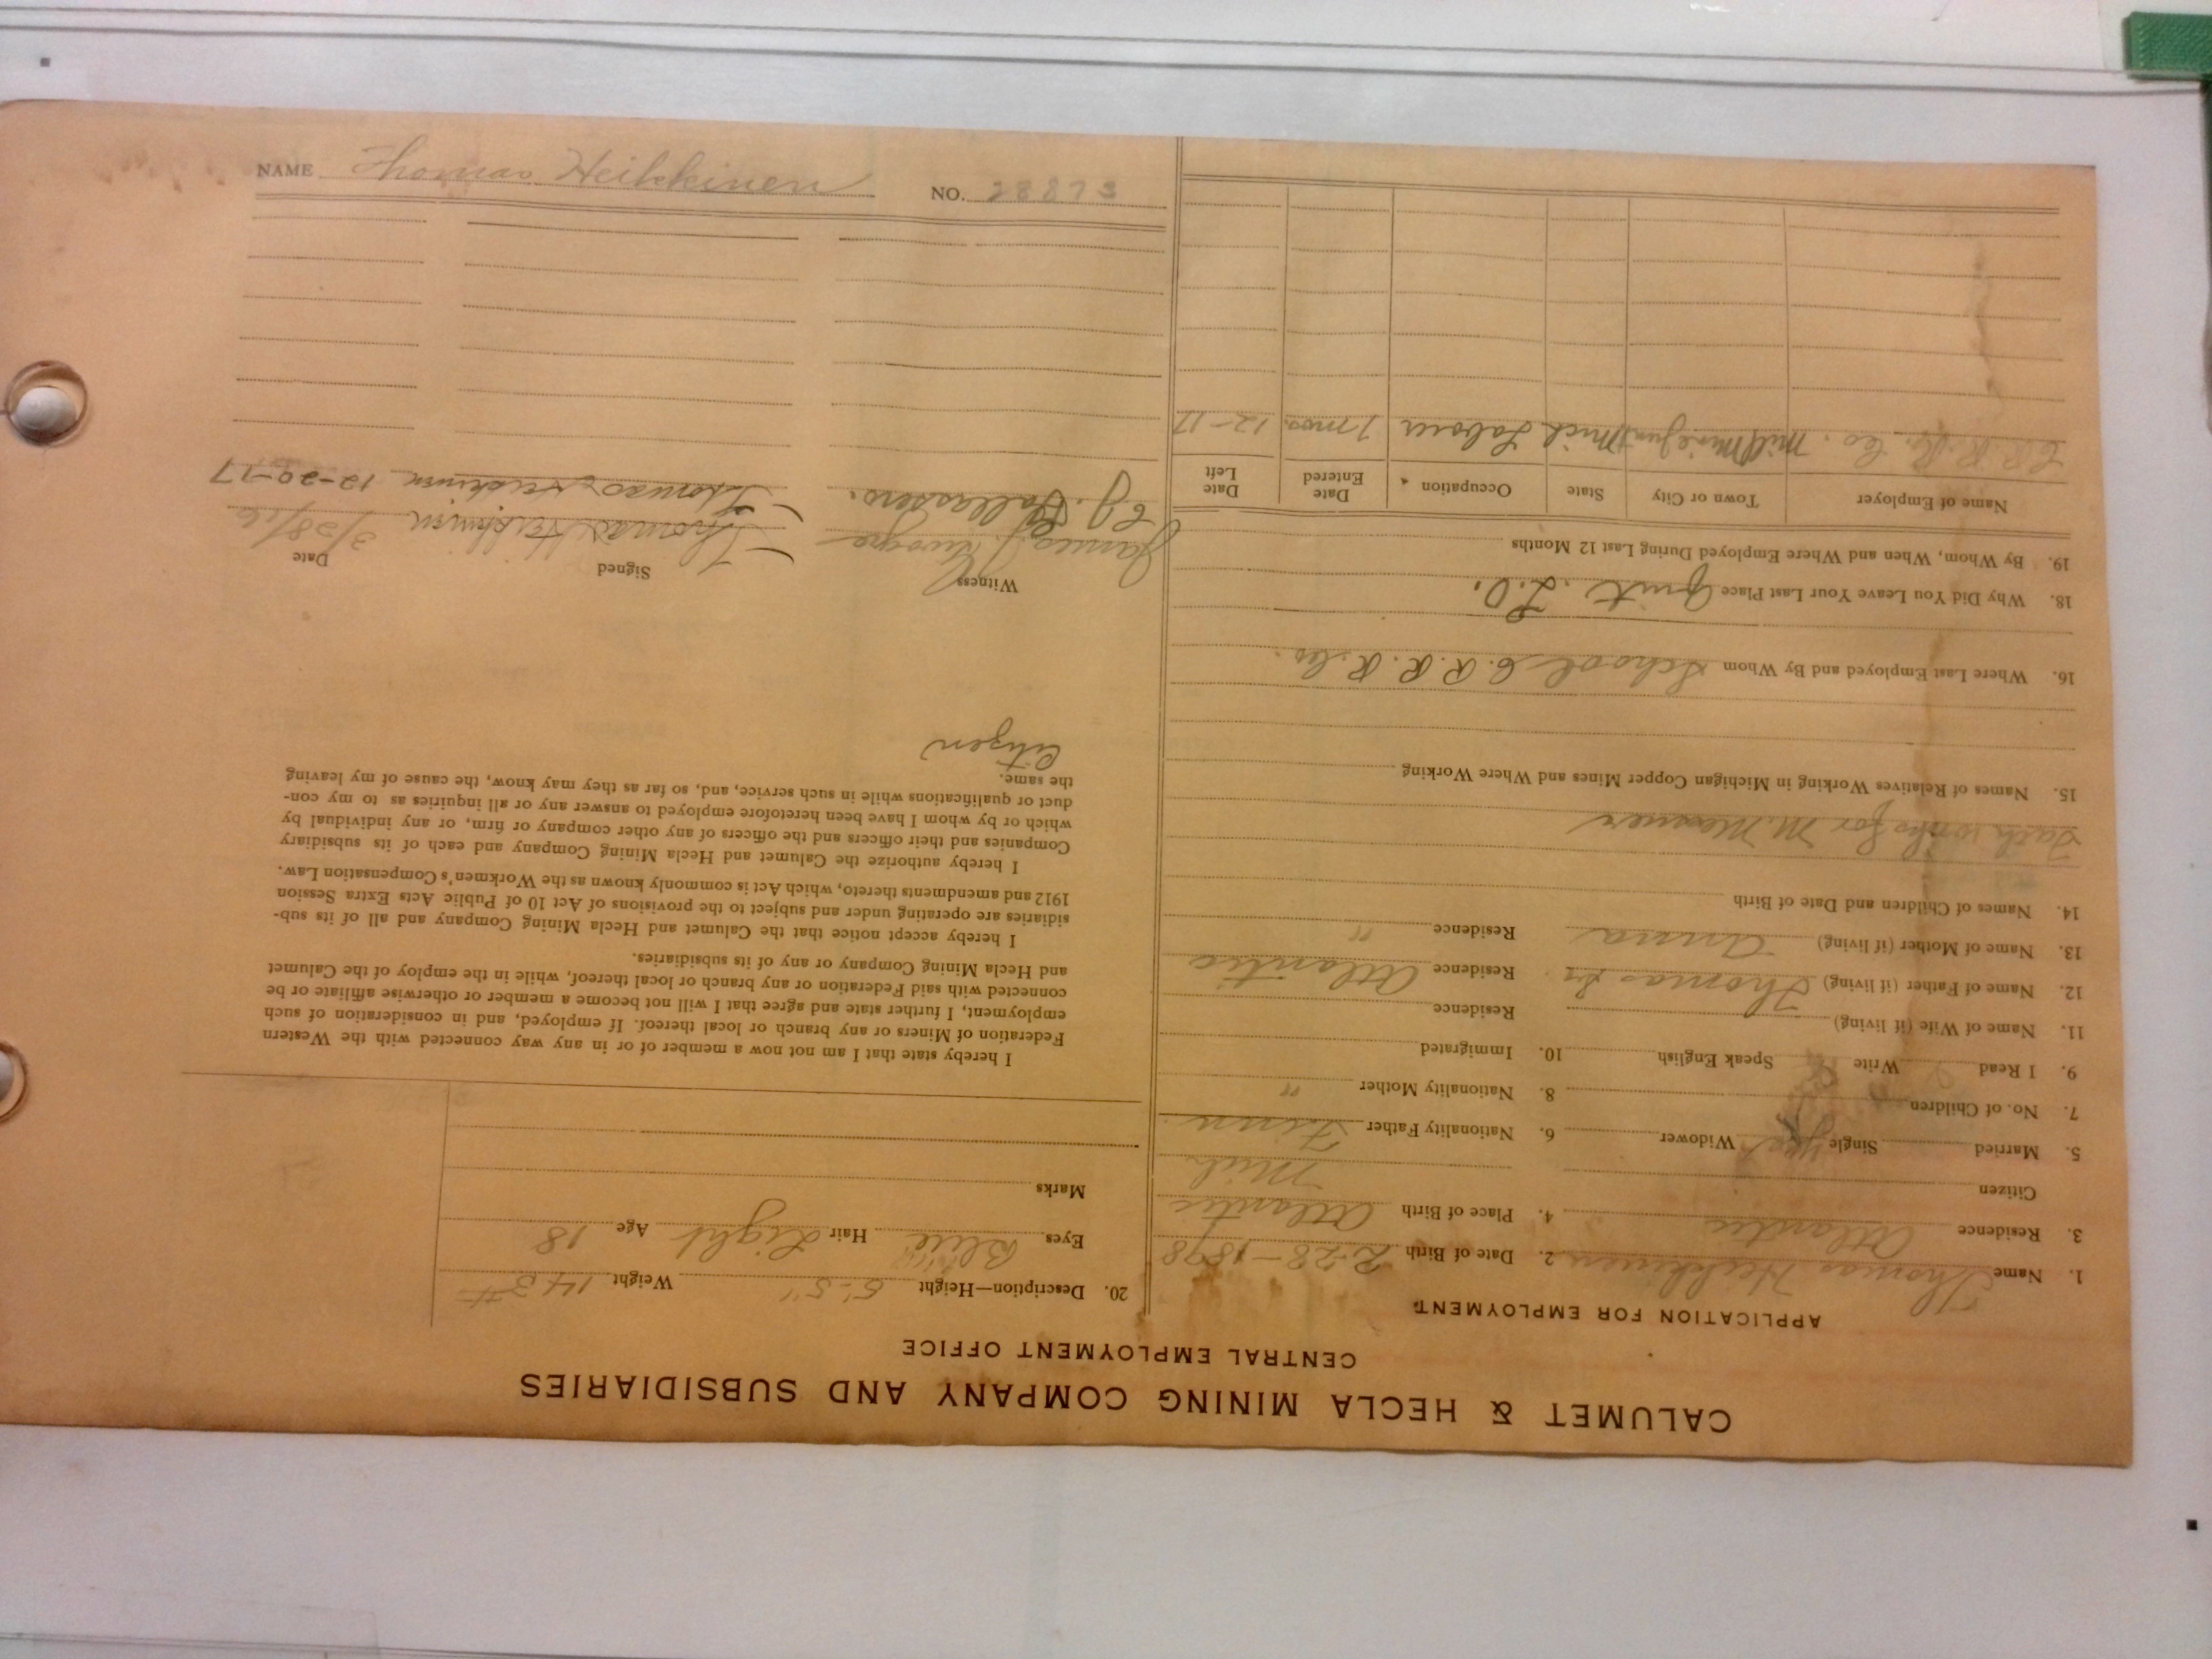 CALUMET & HECLA MINING COMPANY AND SUBSIDIARIES
CENTRAL EMPLOYMENT OFFICE
APPLICATION FOR EMPLOYMENT
1. Name Thomas Heikkinen 2. Date of Birth 2-28-1898
3. Residence Atlantic 4. Place of Birth Atlantic
Citizen Mich
5. Married Single yes Widower 6. Nationality Father Finn
7. No. of Children 8. Nationality Mother "
9. I Read Write Speak English 10. Immigrated
11. Name of Wife (if living) Residence
12. Name of Father (if living) Thomas Sr. Residence Atlantic
13. Name of Mother (if living) Anna Residence "
14. Names of Children and Date of Birth
Fath works for M. Messner
15. Names of Relatives Working in Michigan Copper Mines and Where Working
16. Where Last Employed and By Whom School C. R. R. R. Co.
18. Why Did You Leave Your Last Place Quit. L.O.
19. By Whom, When and Where Employed During Last 12 Months
Name of Employer Town or City State Occupation Date Entered Date Left
C.R. R.R. Co. Mill Mine Junt Mich Labour 7 mos. 12-17
20. Description—Height 5'-5" Weight 143#
Eyes Blue Hair Light Age 18
Marks
I hereby state that I am not now a member of or in any way connected with the Western
Federation of Miners or any branch or local thereof. If employed, and in consideration of such
employment, I further state and agree that I will not become a member or otherwise affiliate or be
connected with said Federation or any branch or local thereof, while in the employ of the Calumet
and Hecla Mining Company or any of its subsidiaries.
I hereby accept notice that the Calumet and Hecla Mining Company and all of its sub-
sidiaries are operating under and subject to the provisions of Act 10 of Public Acts Extra Session
1912 and amendments thereto, which Act is commonly known as the Workmen's Compensation Law.
I hereby authorize the Calumet and Hecla Mining Company and each of its subsidiary
Companies and their officers and the officers of any other company or firm, or any individual by
which or by whom I have been heretofore employed to answer any or all inquiries as to my con-
duct or qualifications while in such service, and, so far as they may know, the cause of my leaving
the same.
Citizen
Witness Signed Date
James Thomas Heikkinen 3/28/16
Thomas Heikkinen 12-20-17
NAME Thomas Heikkinen NO. 28873